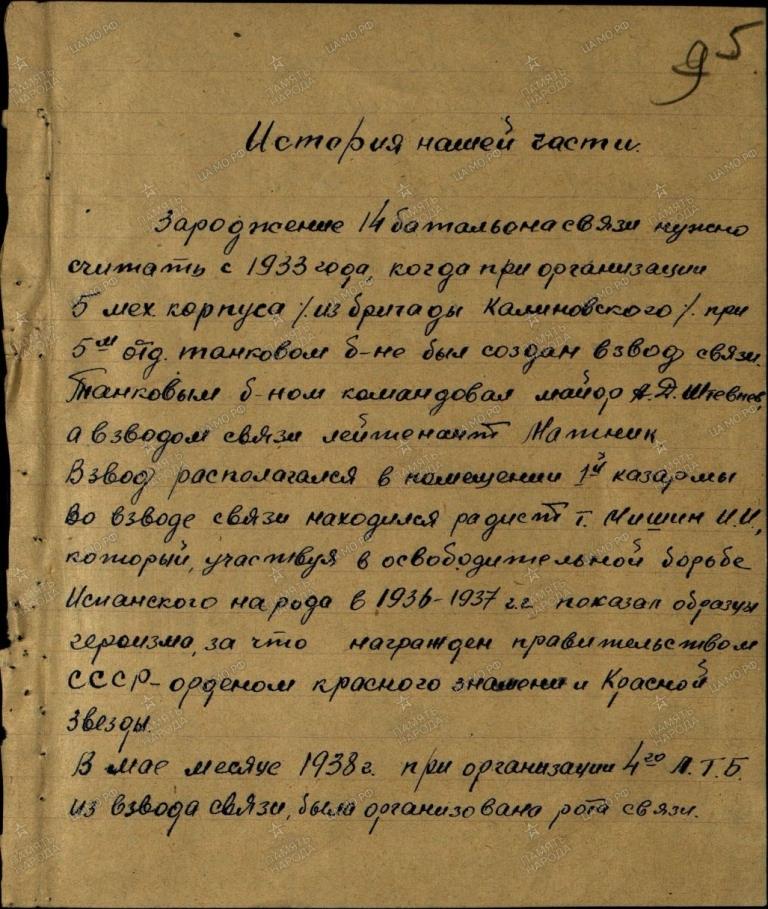 95
История нашей части.
Зарождение 14 батальона связи нужно
считать с 1933 года, когда при организации
5 мех. корпуса /из бригады Калиновского/. при
5м отд. танковом б-не был создан взвод связи.
Танковым б-ном командовал майор А.Д. Штевнев,
а взводом связи лейтенант Матник.
Взвод располагался в помещении 1й казармы
Во взводе связи находился радист т. Мишин И.И.,
который, участвуя в освободительной борьбе
Испанского народа в 1936-1937 г.г. показал образцы
героизма, за что награжден правительством
СССР - орденом красного знамени и Красной
Звезды.
В мае месяце 1938 г. при организации 4го Л.Т.Б.
из взвода связи, была организована рота связи.
ПАМЯТЬ НАРОДА
ЦАМО.РФ